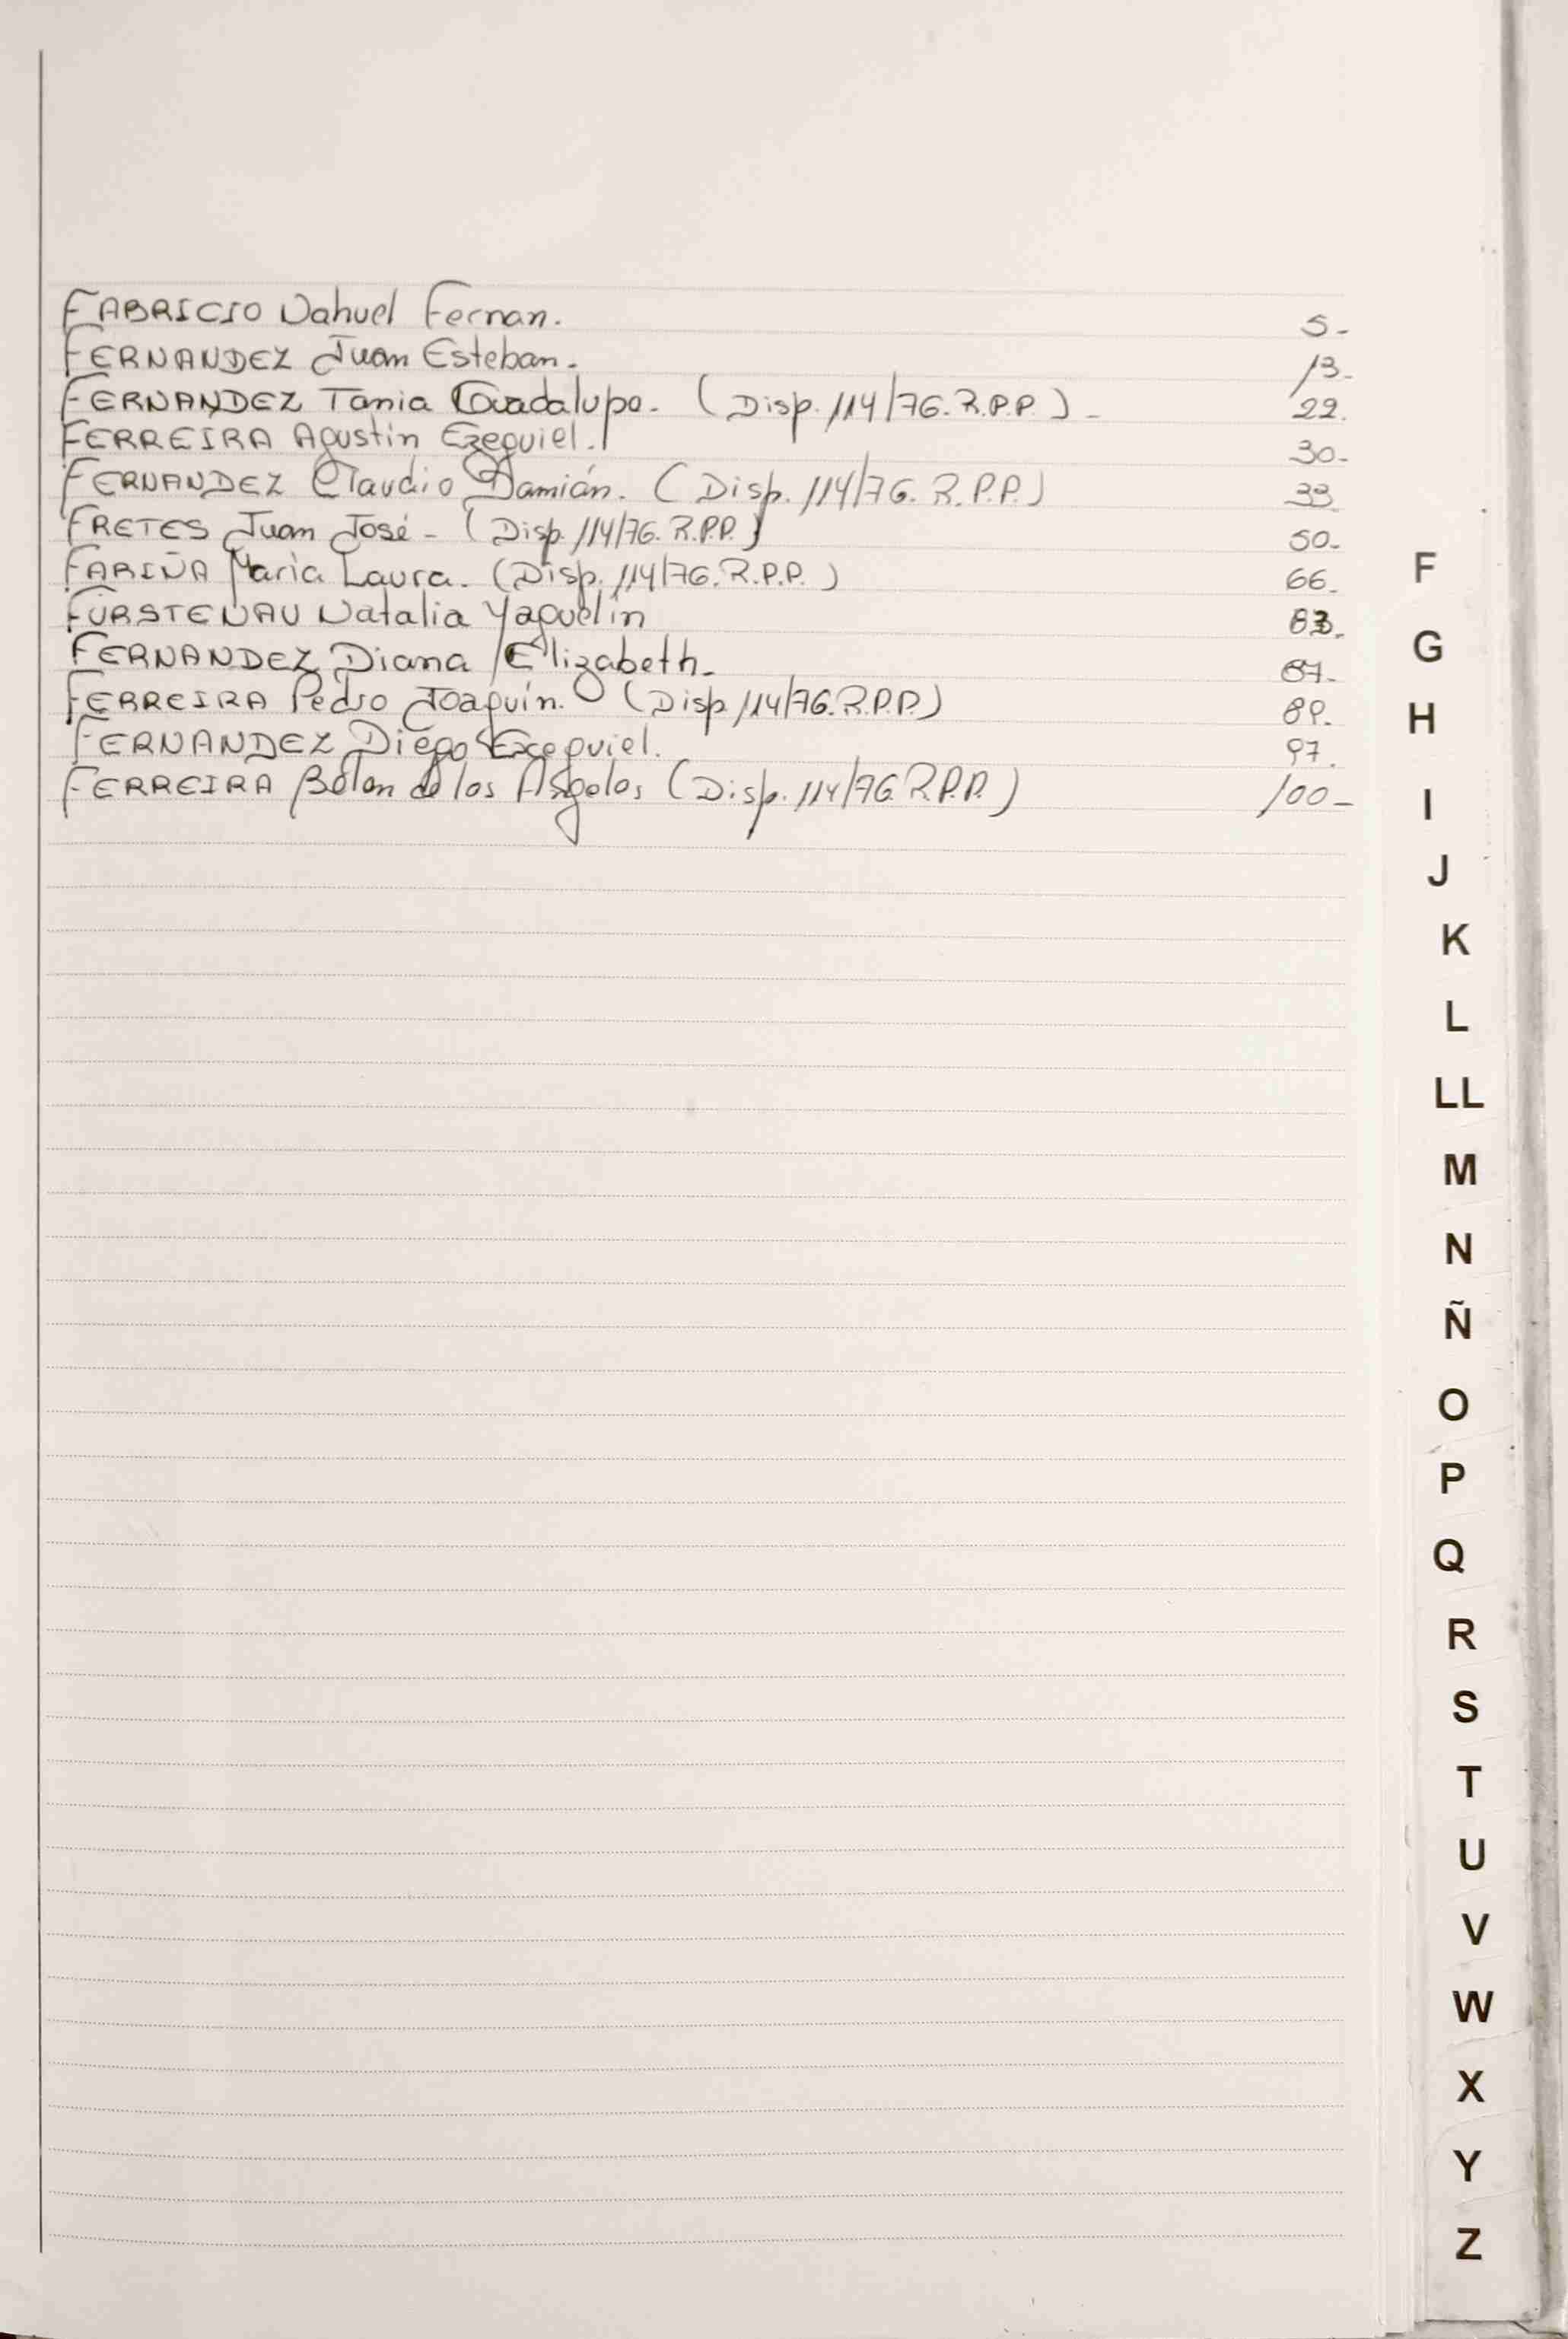 FABRICIO Nahuel Fernan. 5-
FERNANDEZ Juan Esteban. 13-
FERNANDEZ Tania Guadalupe. (Disp. 114/76. R.P.P.) - 22.
FERREIRA Agustin Ezequiel. 30-
FERNANDEZ Claudio Damián. (Disp. 114/76. R.P.P.) 33.
FRETES Juan José - (Disp. 114/76. R.P.P.) 50-
FARIÑA Maria Laura. (Disp. 114/76. R.P.P.) 66.
FURSTENAU Natalia Yaquelin 83.
FERNANDEZ Diana Elizabeth. 87-
FERREIRA Pedro Joaquín. (Disp 114/76. R.P.P.) 89.
FERNANDEZ Diego Exequiel. 97.
FERREIRA Belen de los Angeles (Disp. 114/76 R.P.P.) 100-
F
G
H
I
J
K
L
LL
M
N
Ñ
O
P
Q
R
S
T
U
V
W
X
Y
Z